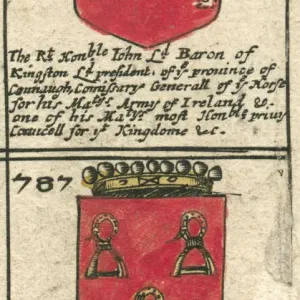 The Rt. Honble Iohn Ld Baron of
Kingston Ld president of ye province of
Connaugh, Comissary Generall of ye Horse
for his Matys Army of Ireland &
one of his Matys most Honble privy
Councell for ye Kingdome &c.
787